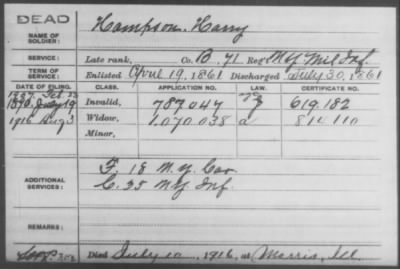 DEAD
NAME OF SOLDIER: Hampson, Harry
SERVICE: Late rank, Co. B, 71 Reg't N.Y. Mil Inf.
TERM OF SERVICE: Enlisted April 19, 1861 Discharged July 30, 1861
DATE OF FILING. CLASS. APPLICATION NO. LAW. CERTIFICATE NO.
1890, July 19 Invalid, 787.047 619.182
1916 Aug 3 Widow, 1.070.038 814.110
Minor,
ADDITIONAL SERVICES: F. 18 N.Y. Cav.
C. 35 N.Y. Inf.
REMARKS:
Died July 10, 1916, at Morris, Ill.